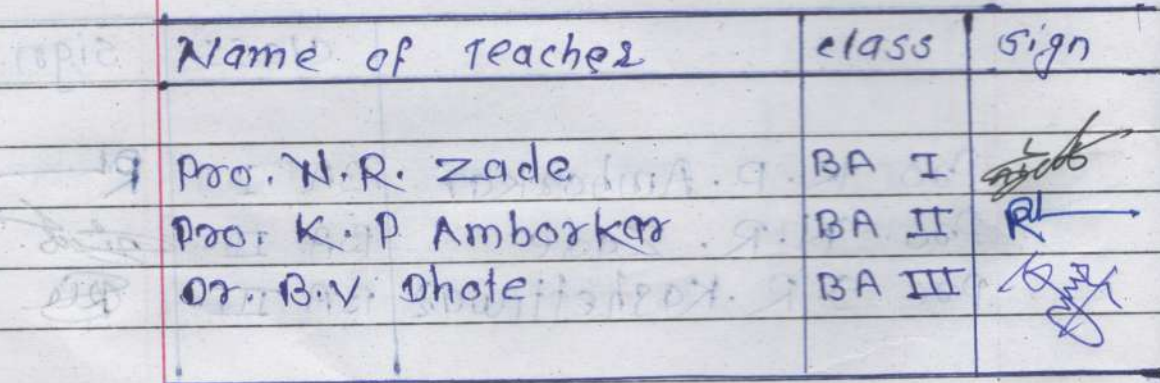 Name of Teacher class sign
Pro. N.R. Zade BA I
Pro. K.P Amborkar BA II
Dr. B.V. Dhote BA III